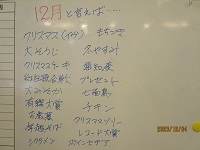 12月と言えば‥‥
クリスマス(イヴ) もちつき
大そうじ 冬やすみ
クリスマスケーキ 忘年会
紅白歌合戦 プレゼント
大みそか 七面鳥
有馬記念 チキン
クリスマスツリー
年越そば レコード大賞
シクラメン ポインセチア
2023/12/04